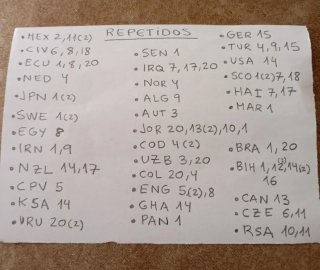 REPETIDOS
• MEX 2,11(2)
• CIV 6,8,18
• ECU 1,8,20
• NED 4
• JPN 1(2)
• SWE 1(2)
• EGY 8
• IRN 1,9
• NZL 14,17
• CPV 5
• KSA 14
• URU 20(2)
• SEN 1
• IRQ 7,17,20
• NOR 4
• ALG 9
• AUT 3
• JOR 20,13(2),10,1
• COD 4(2)
• UZB 3,20
• COL 20,4
• ENG 5(2),8
• GHA 14
• PAN 1
• GER 15
• TUR 4,9,15
• USA 14
• SCO 1(2)7,18
• HAI 7,17
• MAR 1
• BRA 1,20
• BIH 1,12(3),14(2)
16
• CAN 13
• CZE 6,11
• RSA 10,11